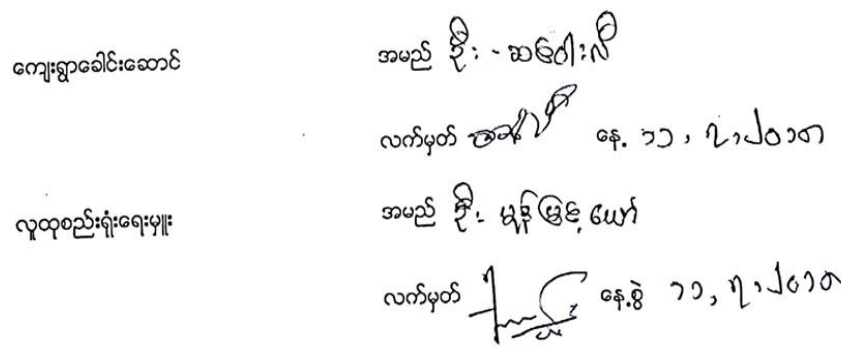 ကျေးရွာခေါင်းဆောင် အမည် ဦး - ဆဝေါးလီ
လက်မှတ် နေ့. ၁၁, ၇, ၂၀၁၈
လူထုစည်းရုံးရေးမှူး အမည် ဦး မွန်မြင့်ယော်
လက်မှတ် နေ့စွဲ ၁၁, ၇, ၂၀၁၈